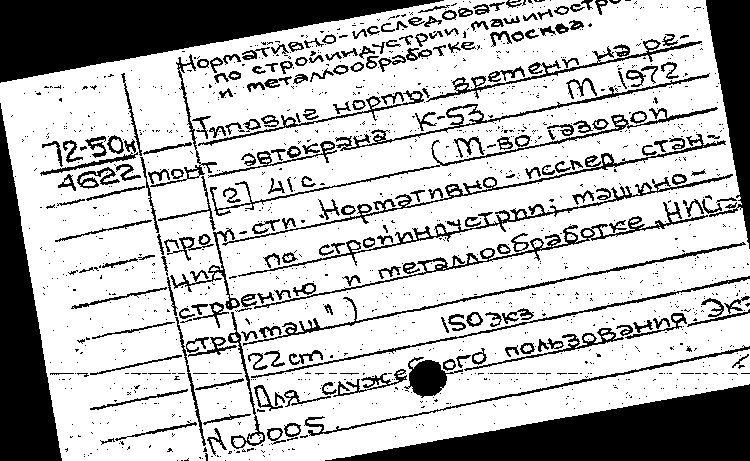 Нормативно-исследовател
по стройиндустрии, машиностро
и металлообработке, Москва.
Типовые нормы времени на ре-
72-50к
4622
монт автокрана К-53. М., 1972
[2] 41 с. (М-во газовой
пром-сти. Нормативно-исслед. стан-
ция по стройиндустрии, машино-
строению и металлообработке "НИСга
строймаш")
22 cm. 150 экз.
Для служебного пользования. Экз
N00005.